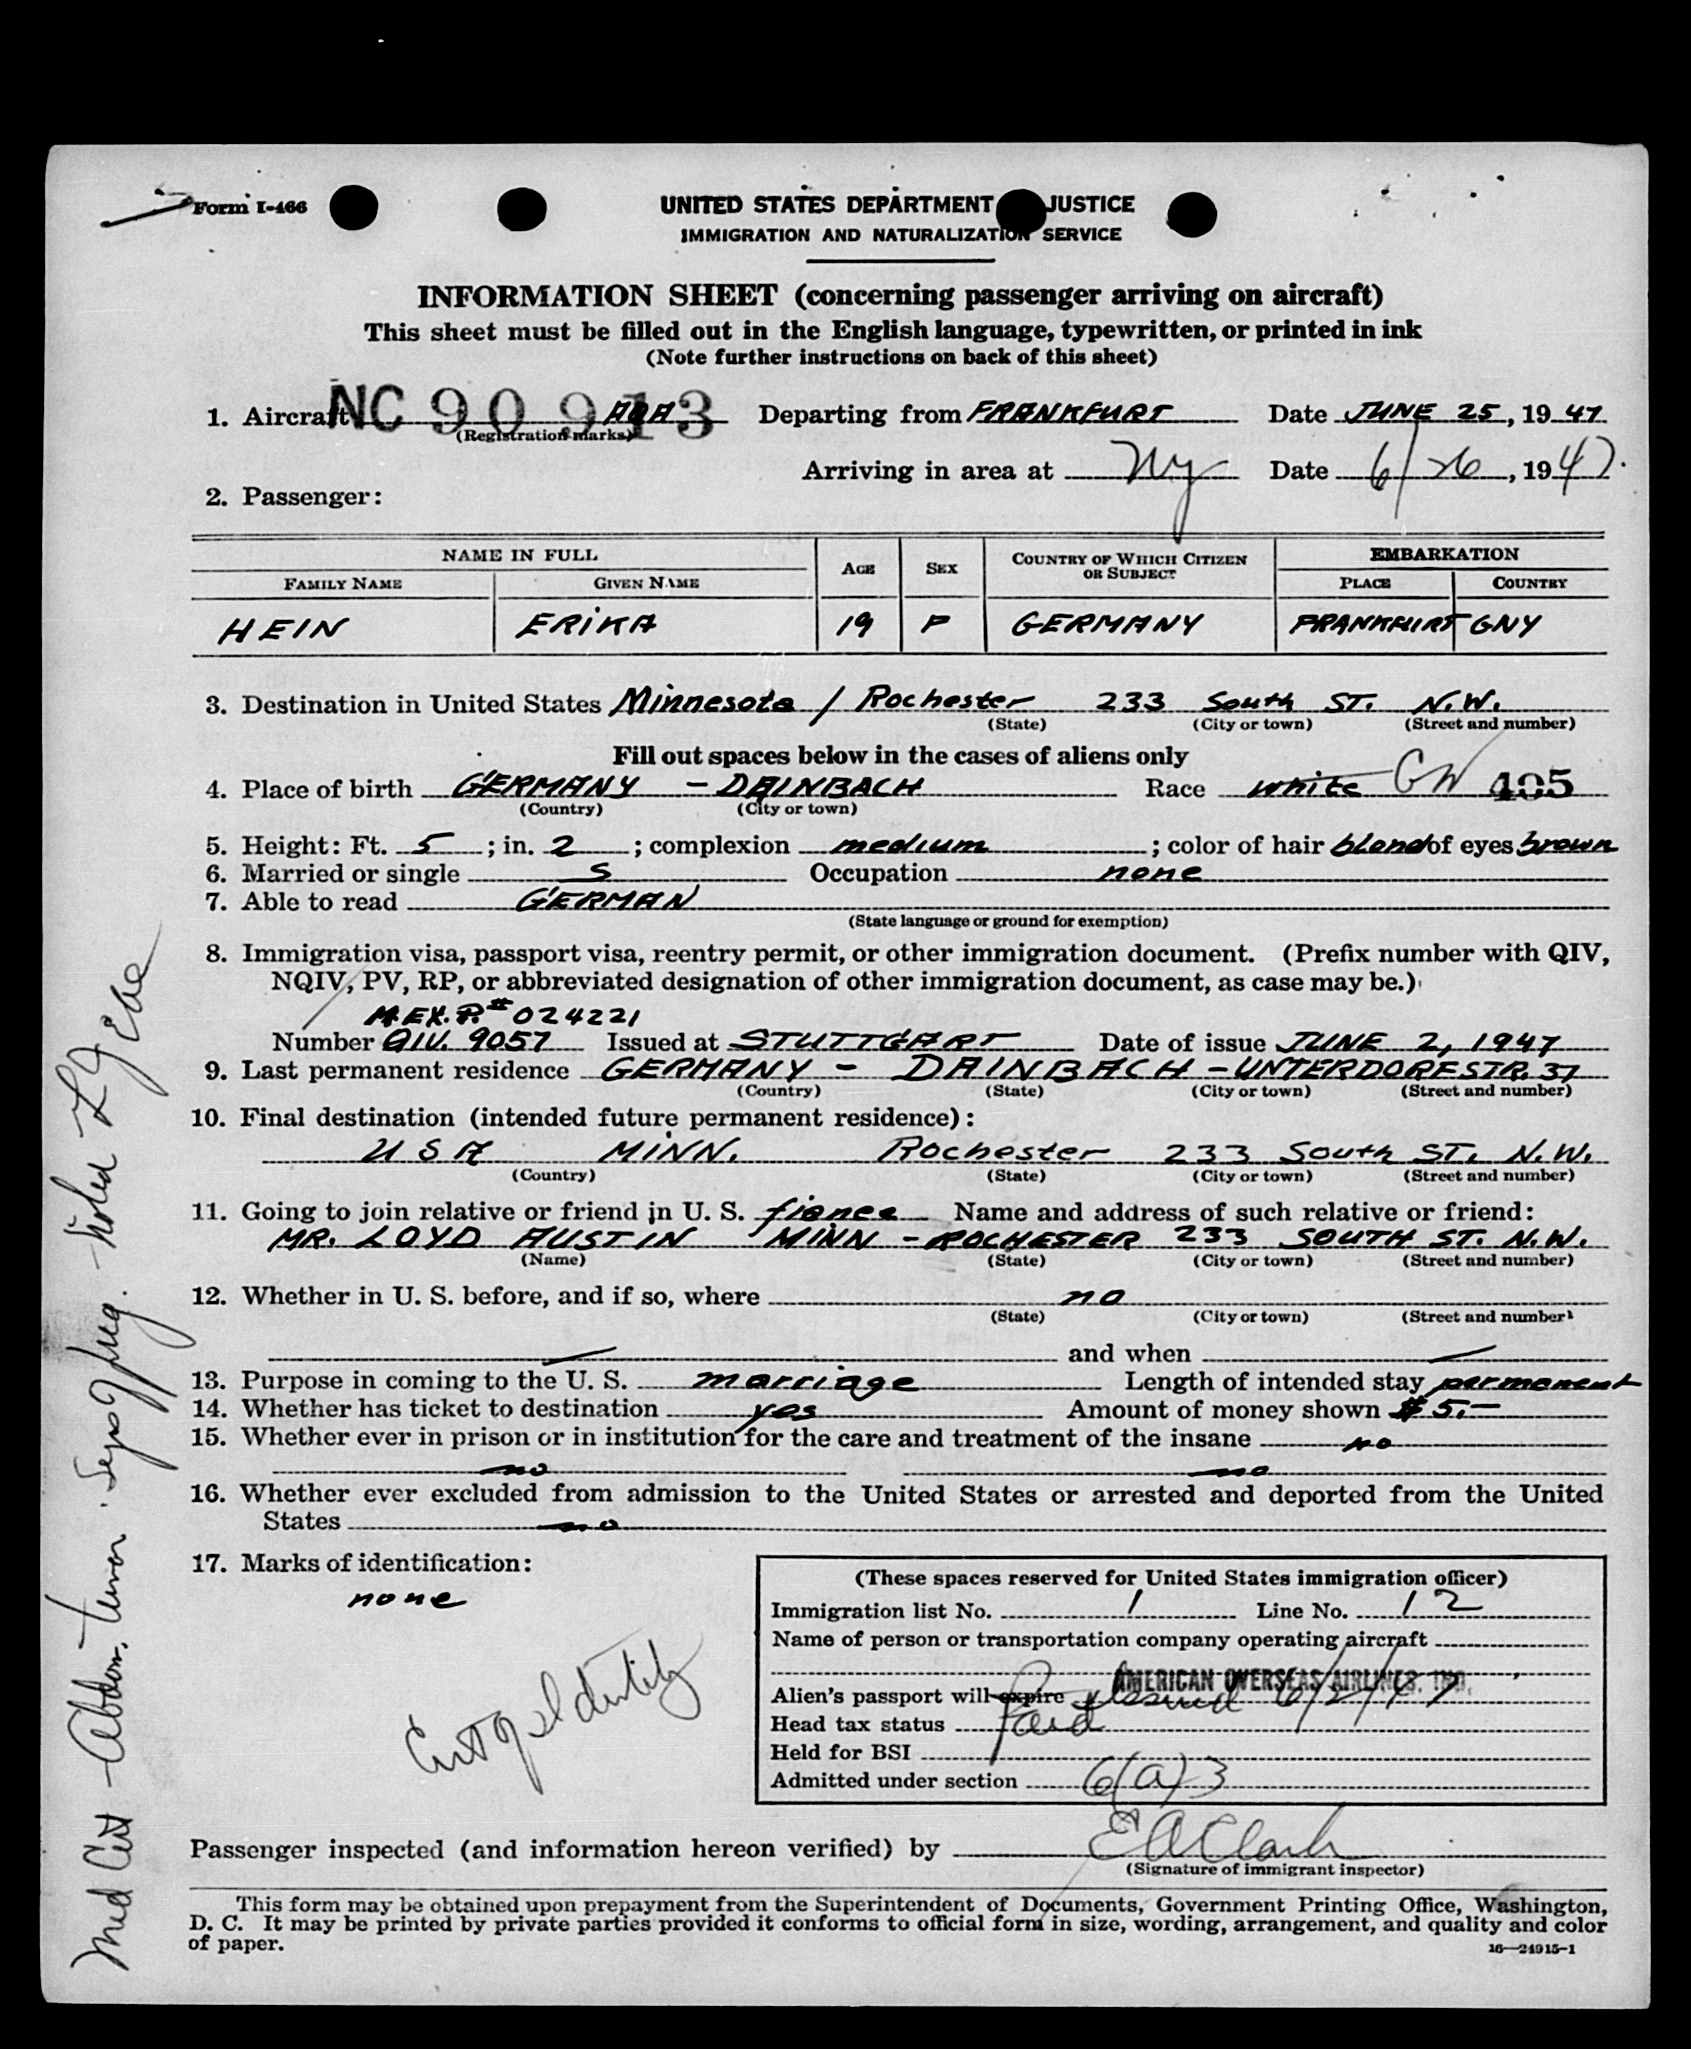 Form I-466
UNITED STATES DEPARTMENT JUSTICE
IMMIGRATION AND NATURALIZATION SERVICE
INFORMATION SHEET (concerning passenger arriving on aircraft)
This sheet must be filled out in the English language, typewritten, or printed in ink
(Note further instructions on back of this sheet)
1. Aircraft NC 90913 AOA Departing from FRANKFURT Date JUNE 25, 1947
(Registration marks)
Arriving in area at NY Date 6/26, 1947.
2. Passenger:
NAME IN FULL AGE SEX COUNTRY OF WHICH CITIZEN OR SUBJECT EMBARKATION
FAMILY NAME GIVEN NAME PLACE COUNTRY
HEIN ERIKA 19 F GERMANY FRANKFURT GNY
3. Destination in United States Minnesota / Rochester 233 South ST. N.W.
(State) (City or town) (Street and number)
Fill out spaces below in the cases of aliens only
4. Place of birth GERMANY - DAINBACH Race white GW 405
(Country) (City or town)
5. Height: Ft. 5 ; in. 2 ; complexion medium ; color of hair blond of eyes brown
6. Married or single S Occupation none
7. Able to read GERMAN
(State language or ground for exemption)
8. Immigration visa, passport visa, reentry permit, or other immigration document. (Prefix number with QIV,
NQIV, PV, RP, or abbreviated designation of other immigration document, as case may be.)
M.EX.P.# 024221
Number QIV. 9057 Issued at STUTTGART Date of issue JUNE 2, 1947
9. Last permanent residence GERMANY - DAINBACH - UNTERDORFSTR. 37
(Country) (State) (City or town) (Street and number)
10. Final destination (intended future permanent residence):
USA MINN. Rochester 233 South ST. N.W.
(Country) (State) (City or town) (Street and number)
11. Going to join relative or friend in U. S. fiance Name and address of such relative or friend:
MR. LOYD AUSTIN MINN - ROCHESTER 233 SOUTH ST. N.W.
(Name) (State) (City or town) (Street and number)
12. Whether in U. S. before, and if so, where no
(State) (City or town) (Street and number)
— and when —
13. Purpose in coming to the U. S. marriage Length of intended stay permanent
14. Whether has ticket to destination yes Amount of money shown $ 5.-
15. Whether ever in prison or in institution for the care and treatment of the insane no
no no
16. Whether ever excluded from admission to the United States or arrested and deported from the United
States no
17. Marks of identification:
none
(These spaces reserved for United States immigration officer)
Immigration list No. 1 Line No. 12
Name of person or transportation company operating aircraft
AMERICAN OVERSEAS AIRLINES, INC.
Alien's passport will expire issued 6/2/47
Head tax status Paid
Held for BSI
Admitted under section 6(a)3
Cert of Identity
Passenger inspected (and information hereon verified) by E A Clark
(Signature of immigrant inspector)
This form may be obtained upon prepayment from the Superintendent of Documents, Government Printing Office, Washington,
D. C. It may be printed by private parties provided it conforms to official form in size, wording, arrangement, and quality and color
of paper.
16—24915-1
Med Cert - Abdom. tumor